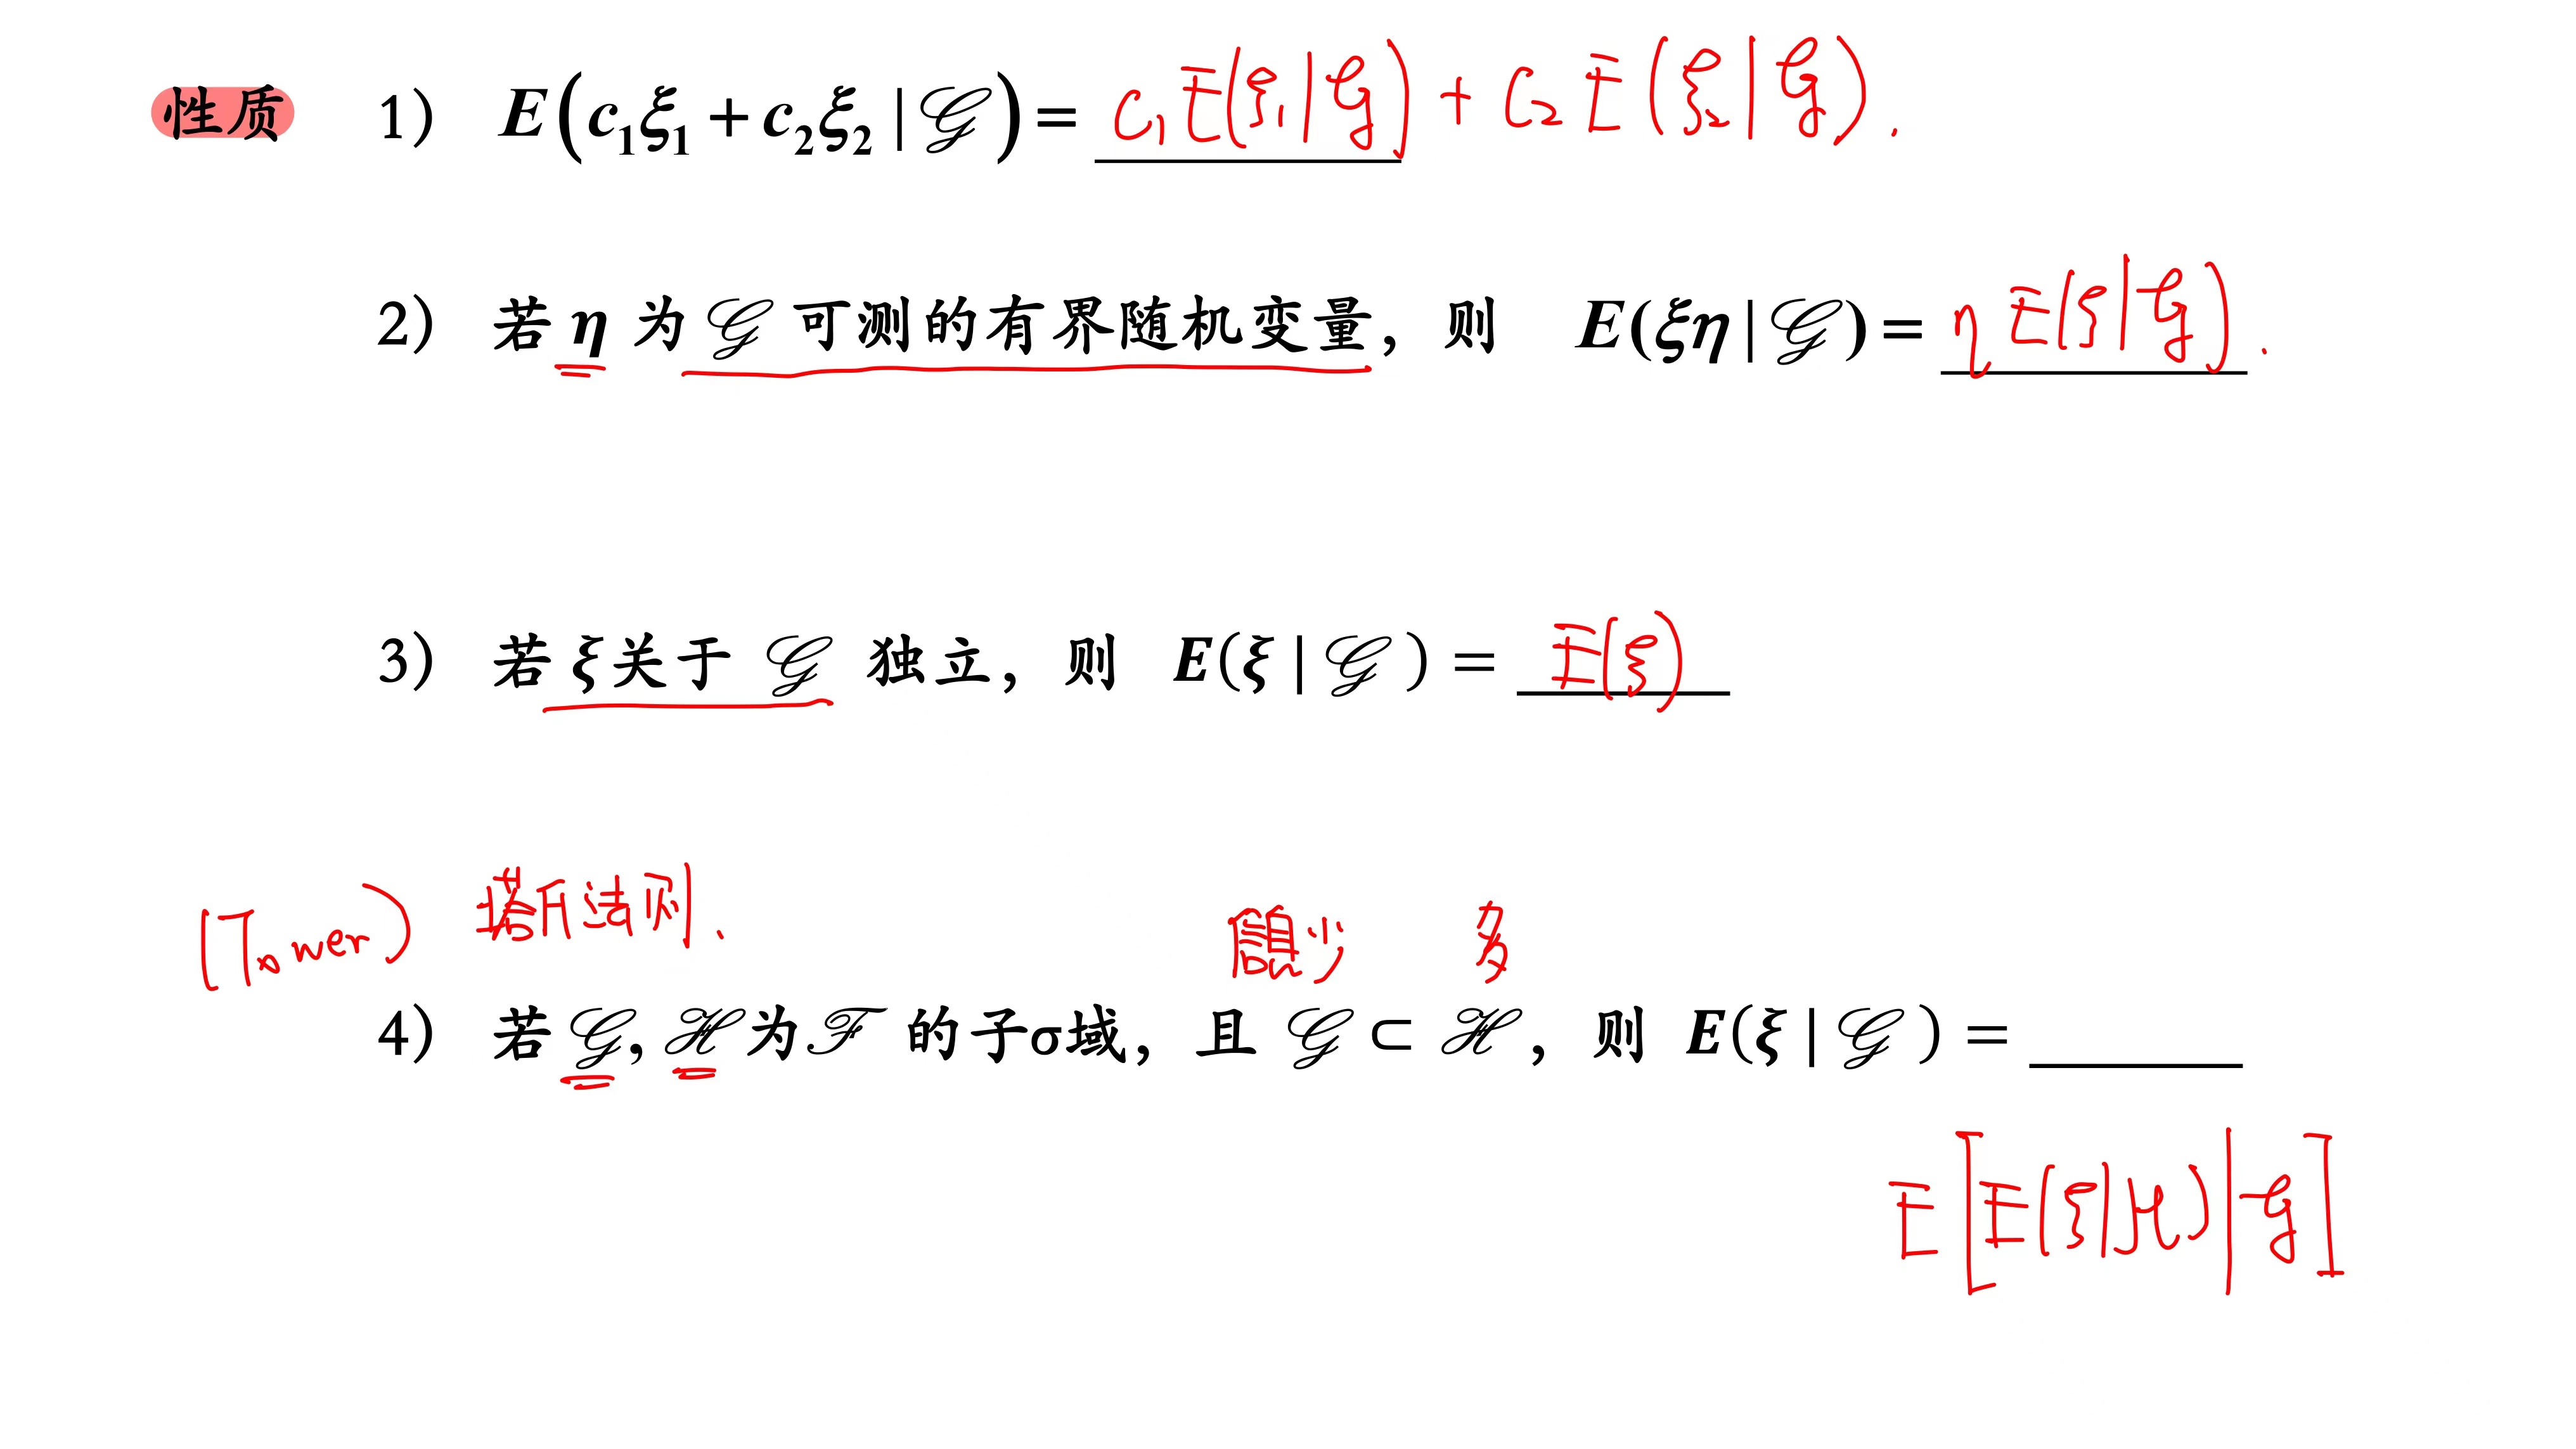 性质 1) E(c₁ξ₁ + c₂ξ₂ | 𝒢) = c₁E(ξ₁|𝒢) + c₂E(ξ₂|𝒢).
2) 若 η 为 𝒢 可测的有界随机变量，则 E(ξη | 𝒢) = ηE(ξ|𝒢).
3) 若 ξ关于 𝒢 独立，则 E(ξ | 𝒢) = E(ξ)
(Tower) 塔氏法则.
信息少 多
4) 若 𝒢, ℋ 为 ℱ 的子σ域，且 𝒢 ⊂ ℋ，则 E(ξ | 𝒢) = ______
E[E(ξ|ℋ)|𝒢]